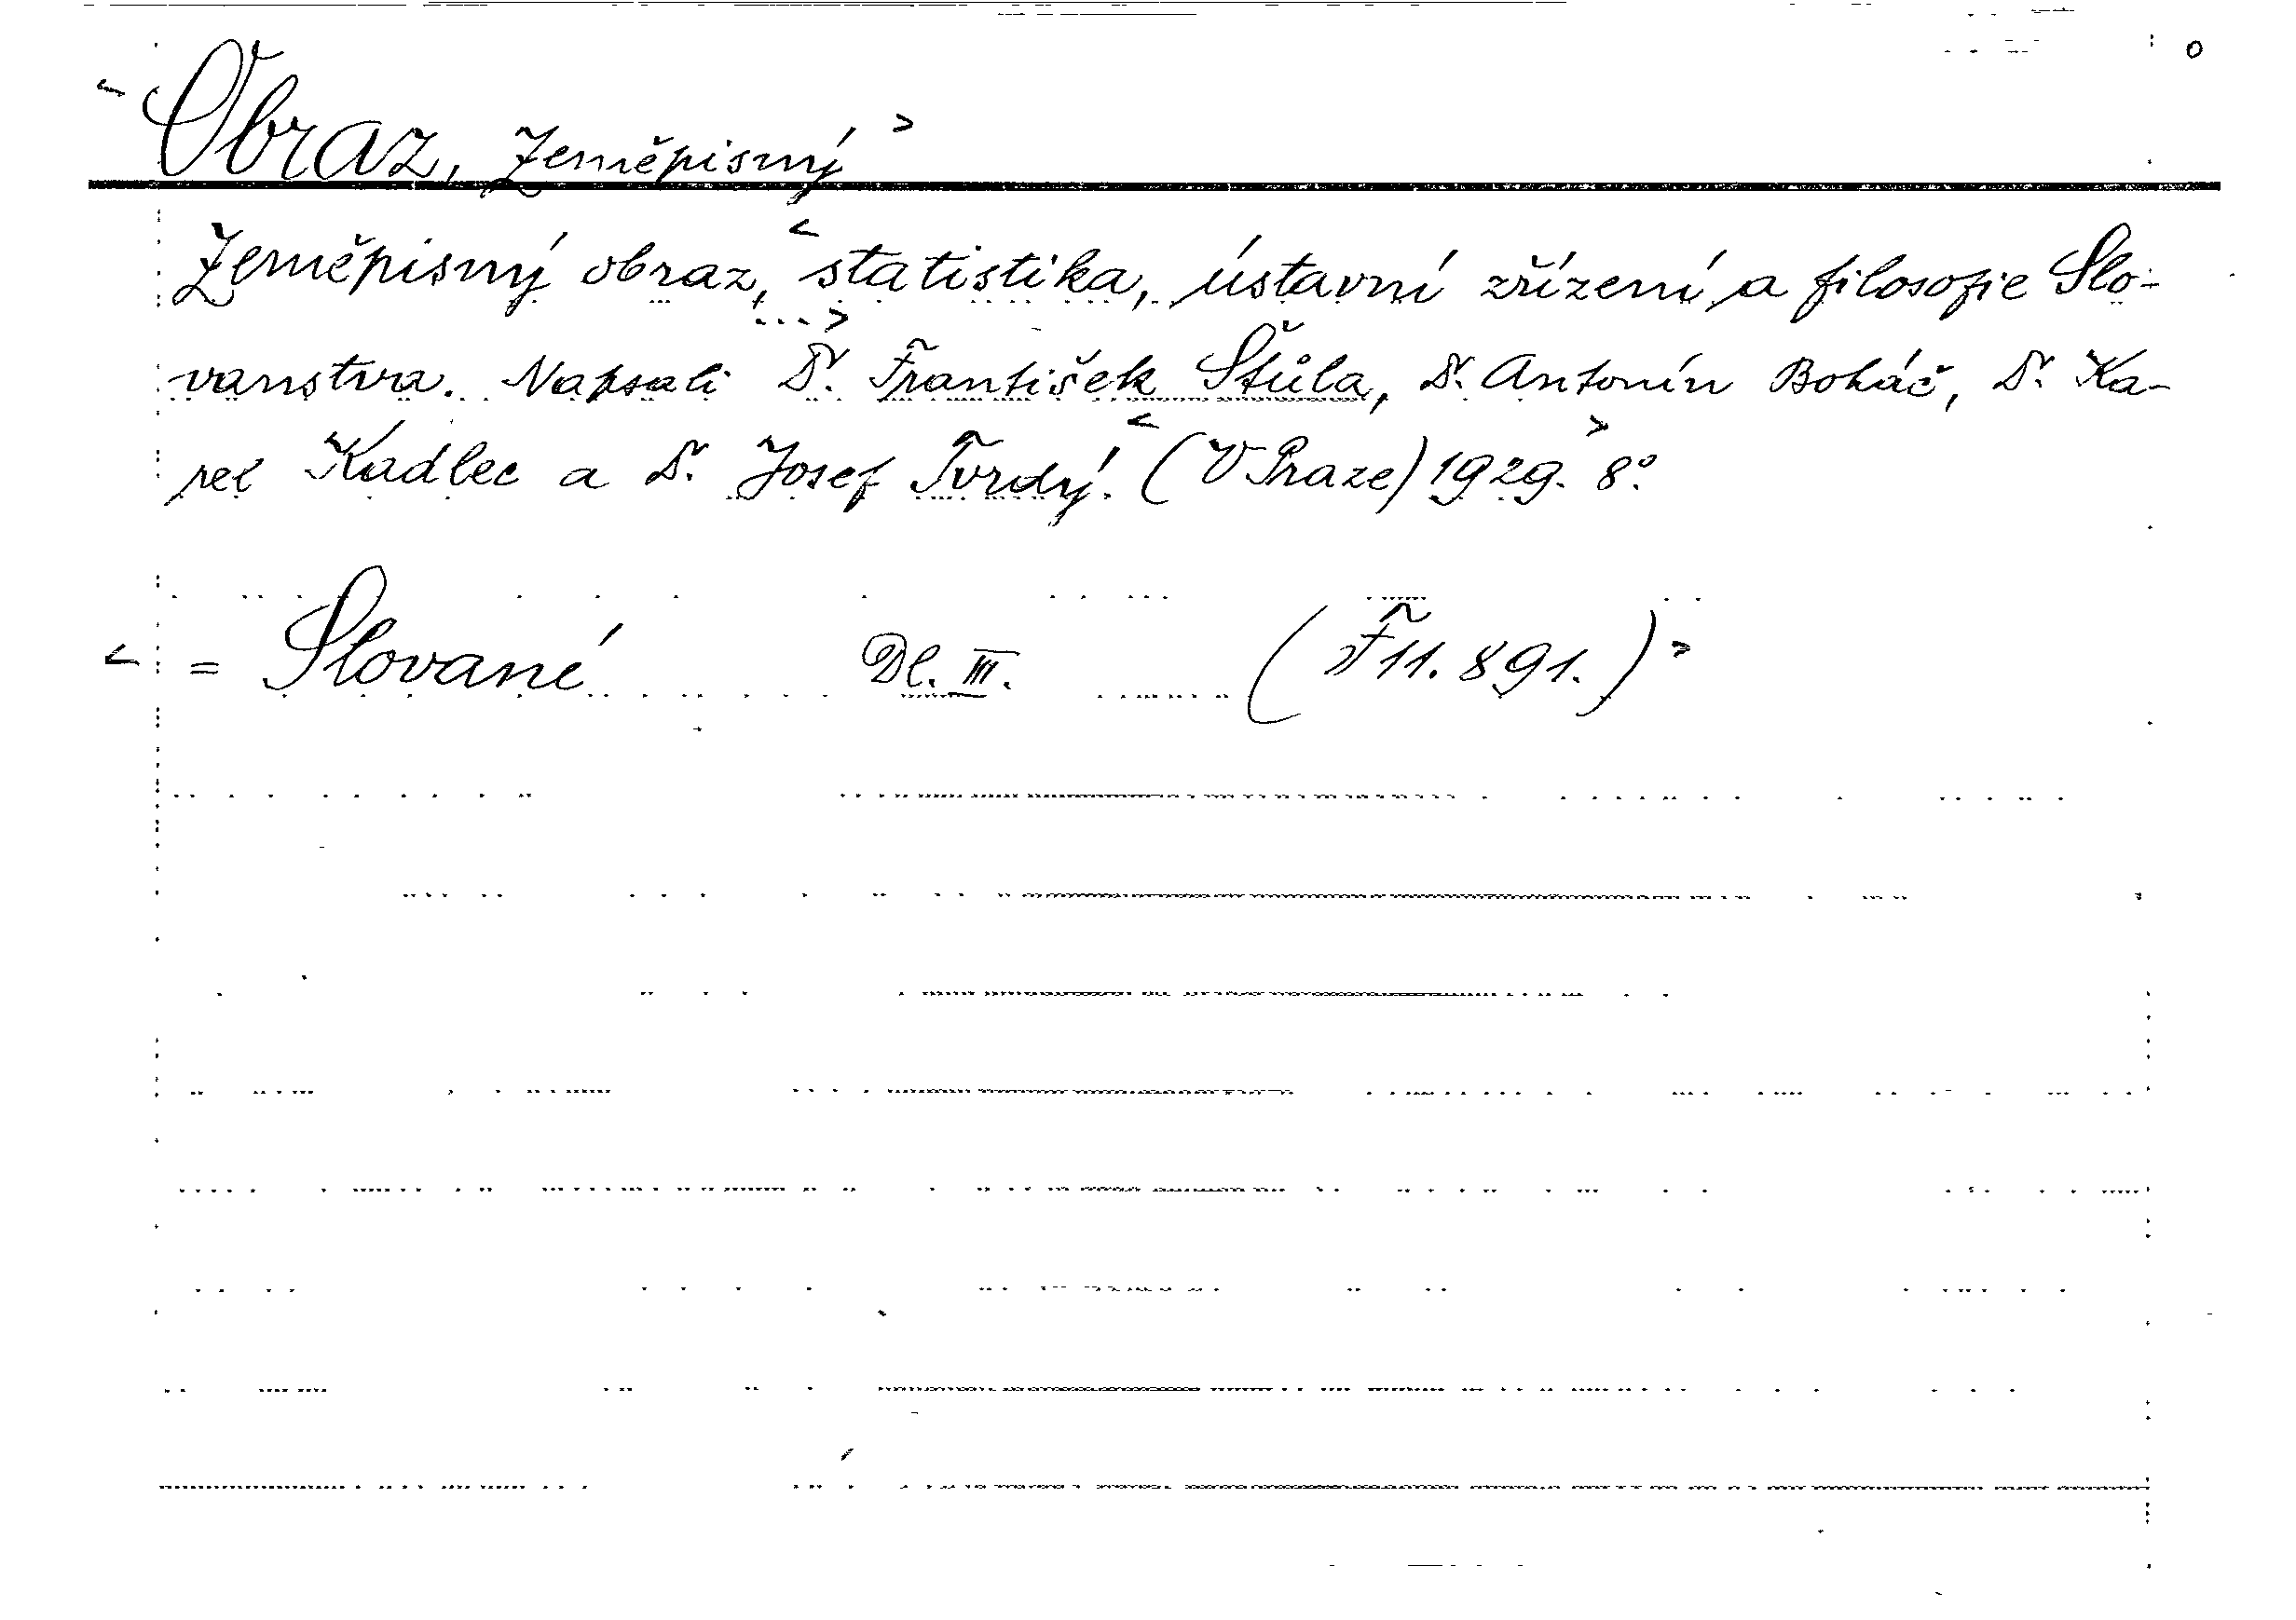 < Obraz, Zeměpisný >
Zeměpisný obraz, < statistika, ústavní zřízení a filosofie Slo-
...>
vanstva. Napsali Dr. František Štůla, Dr. Antonín Boháč, Dr. Ka-
rel Kadlec a Dr. Josef Tvrdý. < (V Praze) 1929. > 8°.
< = Slované Dl. III. (F 11.891.) >